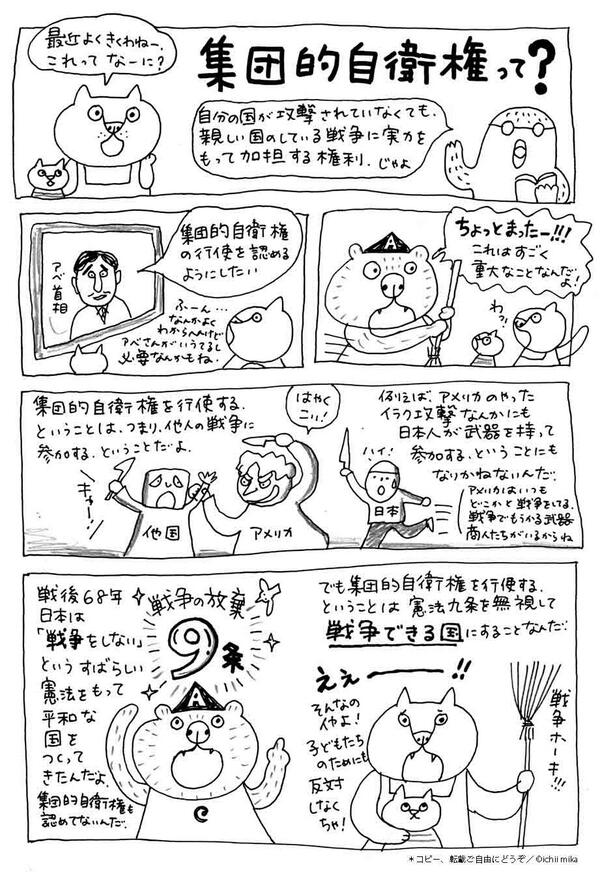 最近よくきくわねー、
これって なーに?
集団的自衛権って?
自分の国が攻撃されていなくても、
親しい国のしている戦争に実力を
もって加担する権利、じゃよ
集団的自衛権
の行使を認める
ようにしたい
アベ首相
ふーん…
なんかよく
わからへんけど
アベさんがいうてるし
必要なんかもね、
A
ちょっとまったー!!!
これはすごく
重大なことなんだ
よ!
わっ!
集団的自衛権を行使する、
ということは、つまり、他人の戦争に
参加する、ということだよ、
はやく
こい!
キャー!
他国
アメリカ
例えば、アメリカのやった
イラク攻撃なんかにも
日本人が武器を持って
参加する、ということにも
なりかねないんだ!
ハイ!
日本
アメリカはいつも
どこかと戦争をしてる、
戦争でもうかる武器
商人たちがいるからね
戦後68年
日本は
「戦争をしない」
というすばらしい
憲法をもって
平和な
国を
つくって
きたんだよ、
集団的自衛権も
認めてないんだ、
戦争の放棄
9条
A
でも集団的自衛権を行使する、
ということは 憲法九条を無視して
戦争できる国にすることなんだ!
えぇーーー!!
そんなの
イヤよ!
子どもたち
のためにも
反対
しなく
ちゃ!
戦争ホーキ!!!
*コピー、転載ご自由にどうぞ/©ichii mika